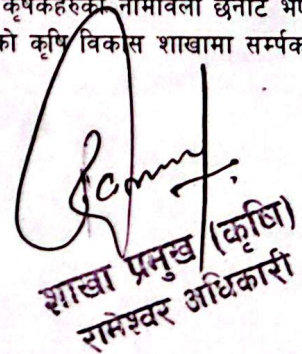 कृषकहरुको नामावली छनौट भए
को कृषि विकास शाखामा सर्म्पक
शाखा प्रमुख (कृषि)
रामेश्वर अधिकारी